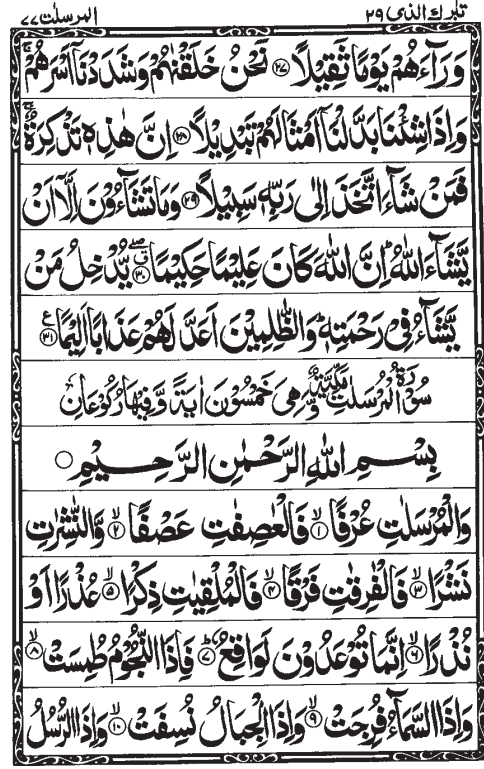 تبٰرك الذی ٢٩ المرسلٰت ٧٧
وَرَآءَهُمْ يَوْمًا ثَقِيْلًا ﴿٢٧﴾ نَحْنُ خَلَقْنٰهُمْ وَشَدَدْنَآ اَسْرَهُمْ ۚ
وَاِذَا شِئْنَا بَدَّلْنَآ اَمْثَالَهُمْ تَبْدِيْلًا ﴿٢٨﴾ اِنَّ هٰذِهٖ تَذْكِرَةٌ ۚ
فَمَنْ شَآءَ اتَّخَذَ اِلٰى رَبِّهٖ سَبِيْلًا ﴿٢٩﴾ وَمَا تَشَآءُوْنَ اِلَّآ اَنْ
يَّشَآءَ اللّٰهُ ؕ اِنَّ اللّٰهَ كَانَ عَلِيْمًا حَكِيْمًا ﴿٣٠﴾ يُّدْخِلُ مَنْ
يَّشَآءُ فِيْ رَحْمَتِهٖ ؕ وَالظّٰلِمِيْنَ اَعَدَّ لَهُمْ عَذَابًا اَلِيْمًا ﴿٣١﴾ ع
سُوْرَةُ الْمُرْسَلٰتِ مَكِّيَّةٌ وَّهِيَ خَمْسُوْنَ اٰيَةً وَّفِيْهَا رُكُوْعَانِ
بِسْمِ اللّٰهِ الرَّحْمٰنِ الرَّحِيْمِ ○
وَالْمُرْسَلٰتِ عُرْفًا ﴿١﴾ۙ فَالْعٰصِفٰتِ عَصْفًا ﴿٢﴾ۙ وَّالنّٰشِرٰتِ
نَشْرًا ﴿٣﴾ۙ فَالْفٰرِقٰتِ فَرْقًا ﴿٤﴾ۙ فَالْمُلْقِيٰتِ ذِكْرًا ﴿٥﴾ۙ عُذْرًا اَوْ
نُذْرًا ﴿٦﴾ۙ اِنَّمَا تُوْعَدُوْنَ لَوَاقِعٌ ﴿٧﴾ؕ فَاِذَا النُّجُوْمُ طُمِسَتْ ﴿٨﴾ۙ
وَاِذَا السَّمَآءُ فُرِجَتْ ﴿٩﴾ۙ وَاِذَا الْجِبَالُ نُسِفَتْ ﴿١٠﴾ۙ وَاِذَا الرُّسُلُ